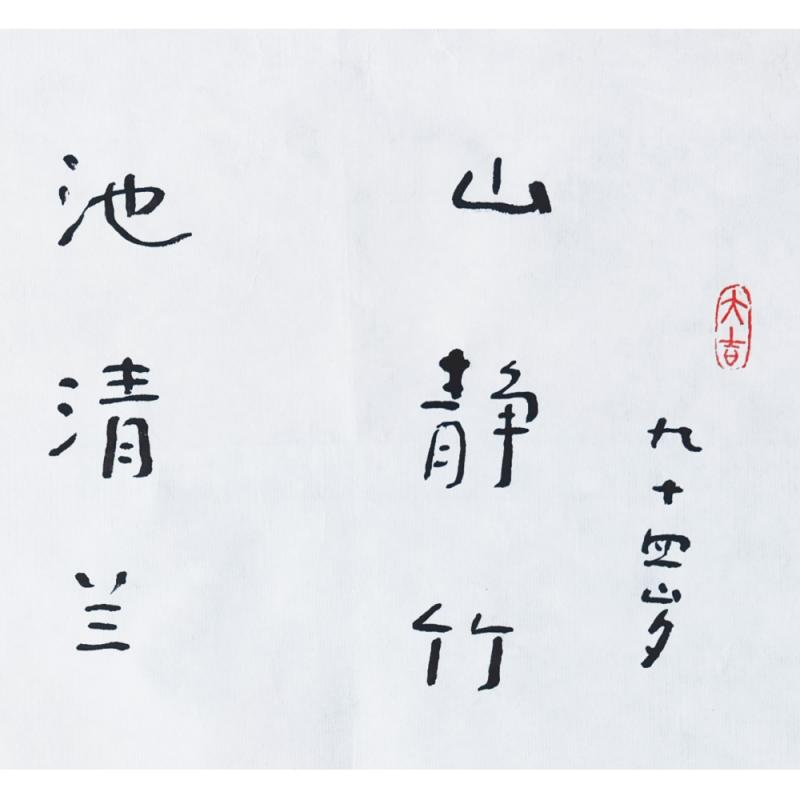 大吉
九十四岁
山静竹
池清兰